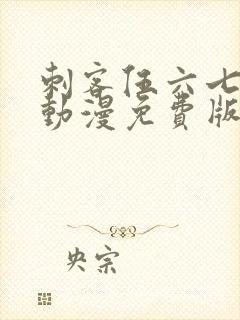 刺客伍六七
動漫免費版
央宗